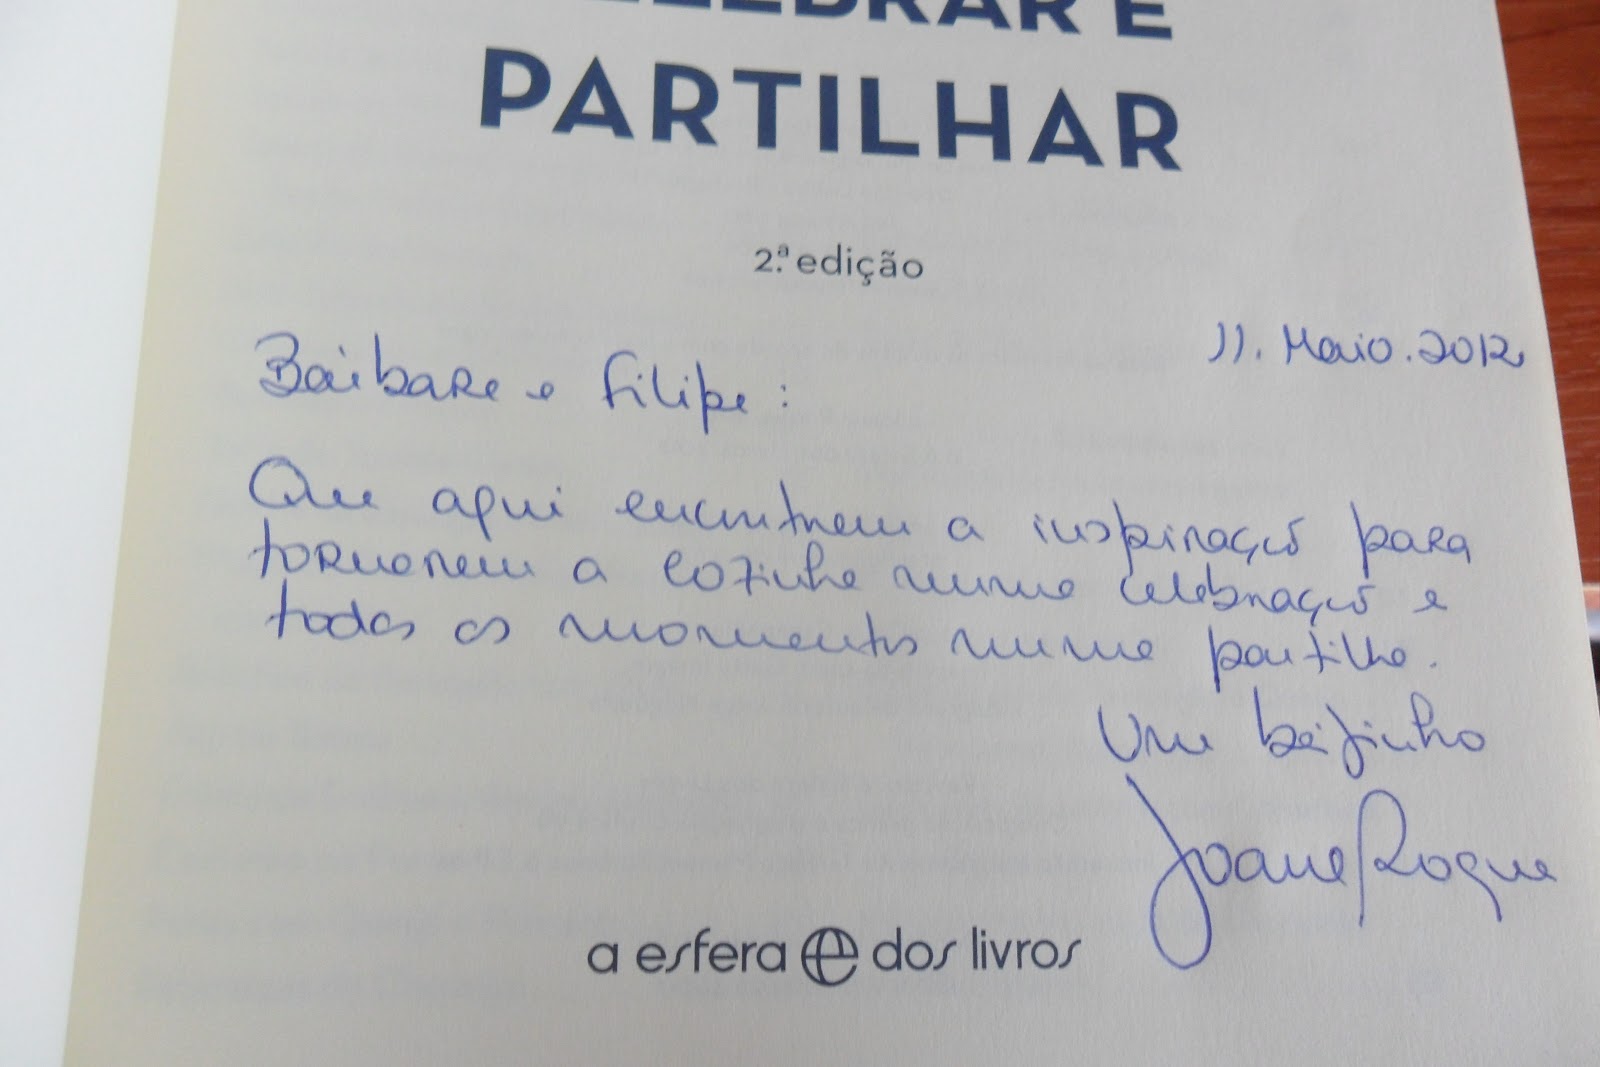 CELEBRAR E
PARTILHAR
2.ª edição
11. Maio. 2012
Bárbara e Filipe:
Que aqui encontrem a inspiração para
tornarem a cozinha numa celebração e
todos os momentos numa partilha.
Um beijinho
Joana Roque
a esfera dos livros